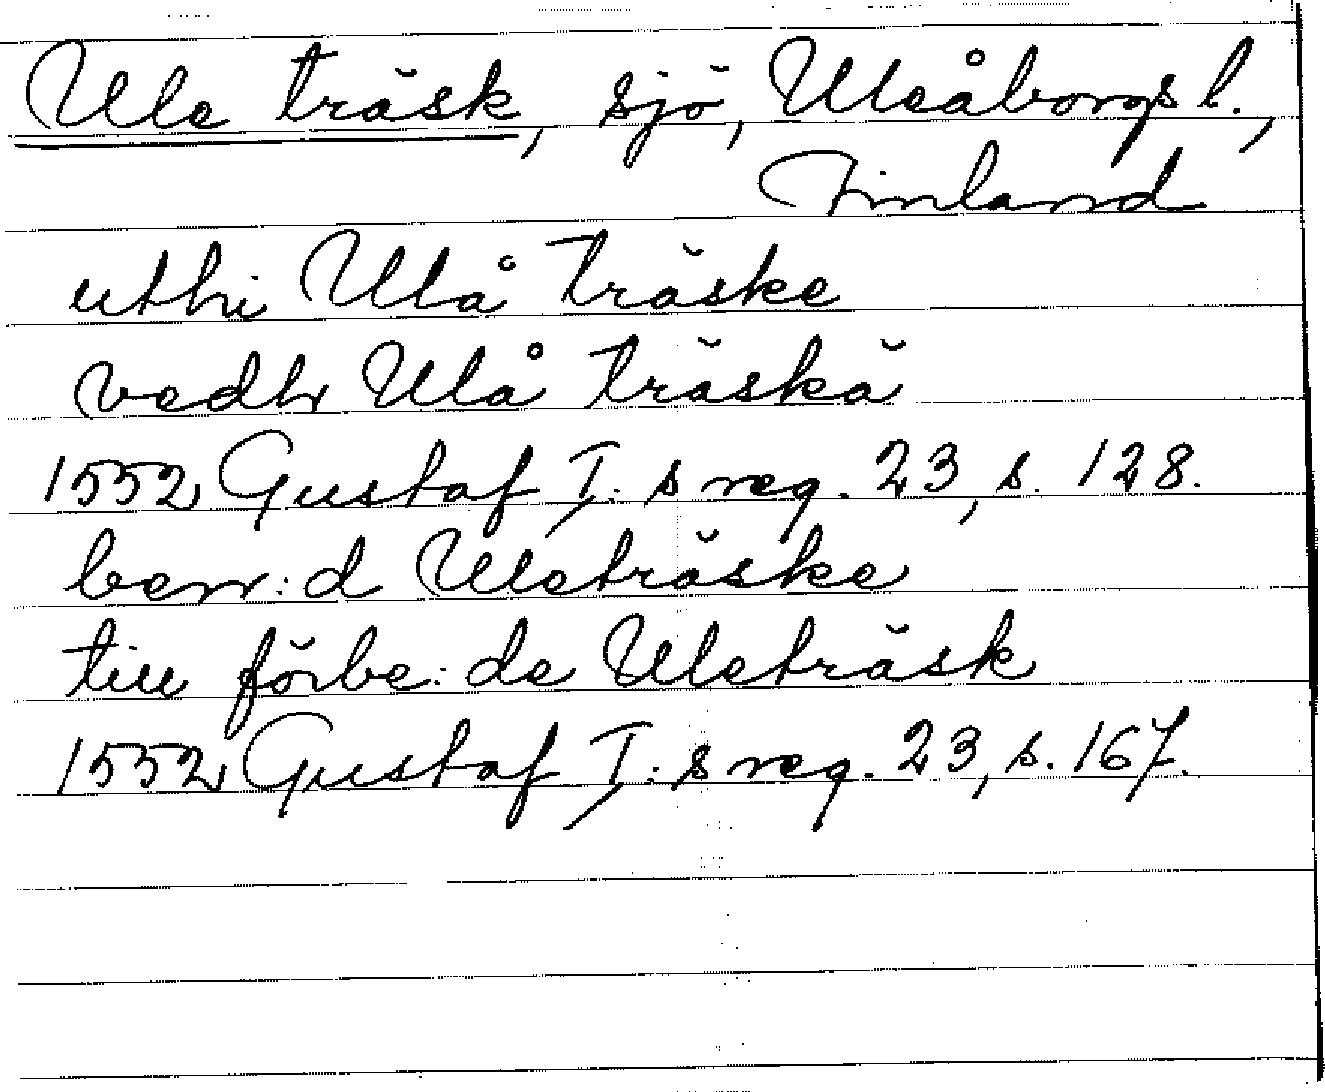 Ule träsk, sjö, Uleåborgs l.,
Finland
uthi Ulå träske
vedh Ulå träskä
1552 Gustaf I:s reg. 23, s. 128.
ber:d Uleträske
till förbe:de Uleträsk
1552 Gustaf I:s reg. 23, s. 167.